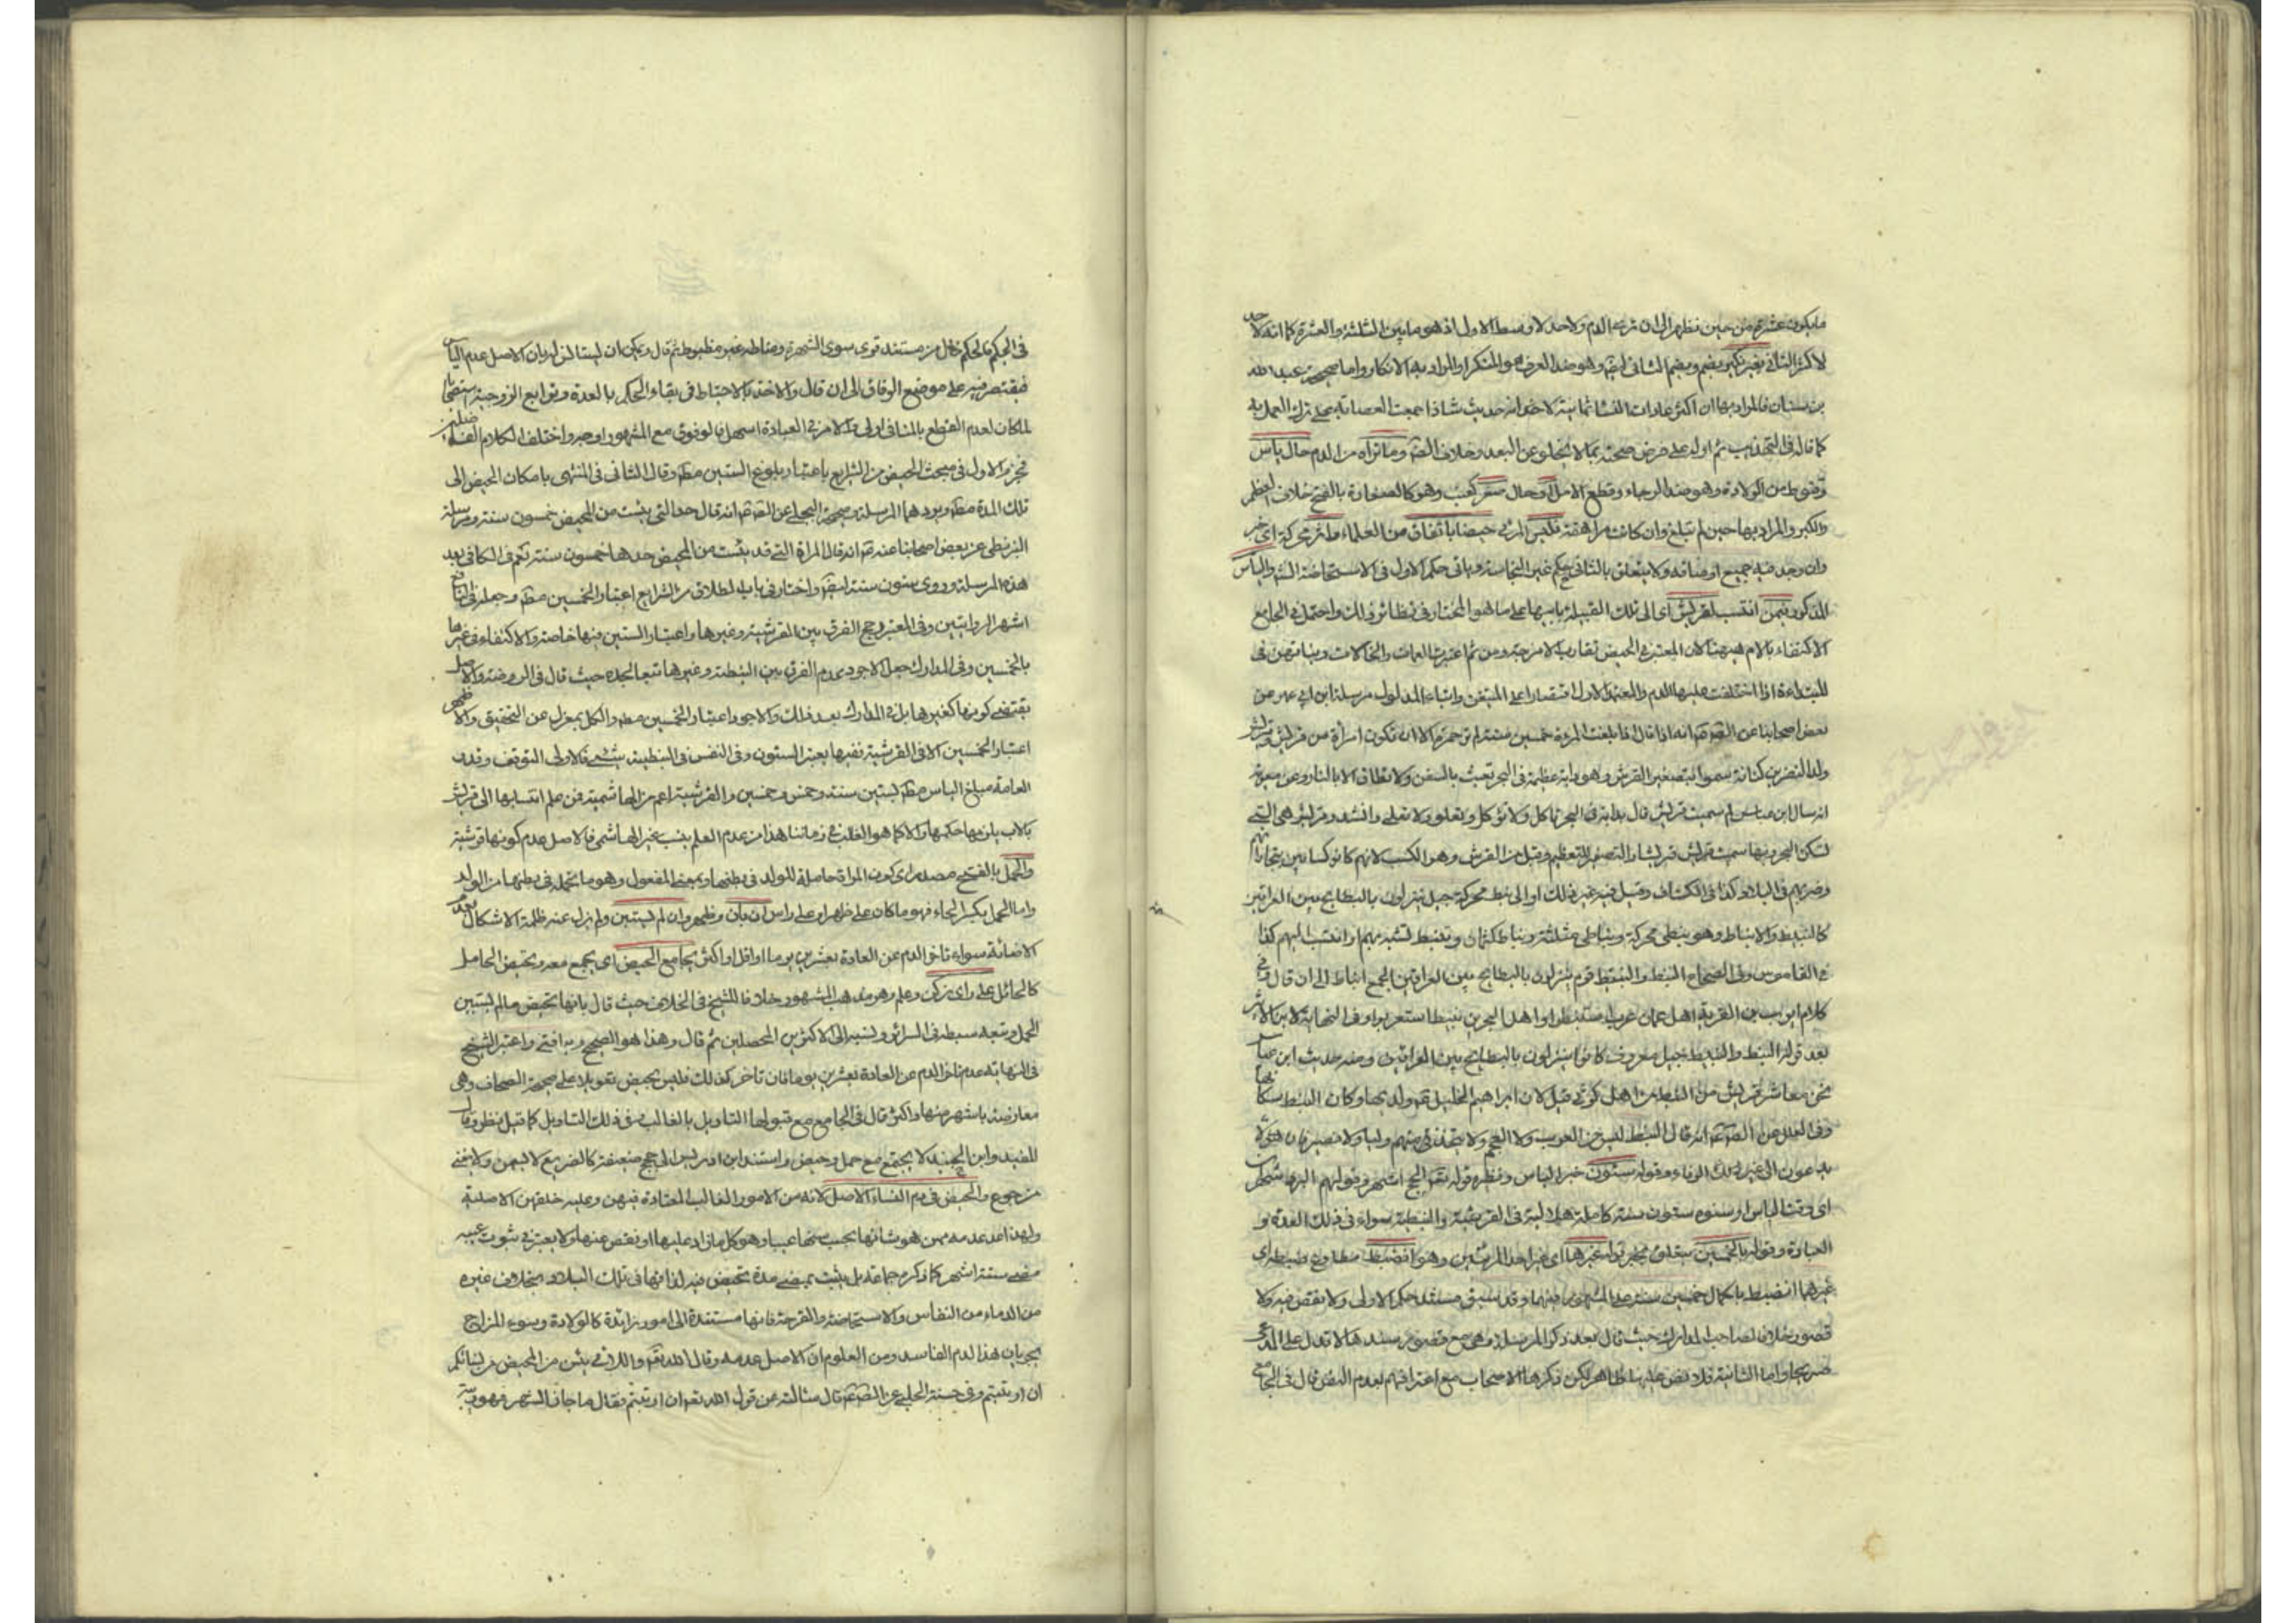 ما يكون عشرة من حين نظهر الى ان ترى الدم ولا حد لاوسط الاول اذ هو ما بين الثلثة والعشرة كما انه لا حد
لاكثر الثانى بغير نكير بضم وبضم الثانى ايضا وهو ضد العرف هو المنكر والمراد به الانكار واما صحيحة عبد الله
بن سنان فالمراد بها ان اكثر عادات النساء ثمانية لا خوانه حديث شاذ اجمعت العصابة على ترك العمل به
كما قاله فى التهذيب ثم اوله على فرض صحته بما لا يخلو عن البعد وخلاف الصـ وما تراه من الدم حال ياس
وقنوط من الولادة وهو ضد الرجاء وقطع الامل او حال صغر كعنب وهو كالصغارة بالفتح خلاف العظم
والكبر والمراد بها حين لم تبلغ وان كانت مراهقة فليس المرئى حيضا باتفاق من العلماء واثر محركة اى خبر
وان وجد فيه جميع اوصافه ولا يتعلق بالثانى حكم غير النجاسة وياتى حكم الاول فى الاستحاضة انشـ والياس
المذكور فيمن انتسب لقريش اى الى تلك القبيلة بابيها على ما هو المختار فى نظائر ذلك واحتمل فى الجامع
الاكتفاء بالام هيهنا لان المعتبر فى الحيض تقارب الامزجة ومن ثم اعتبرت العمات والخالات وبناتهن فى
المبتداءة اذا اختلفت عليها الدم والمعتمد الاول اقتصارا على المتيقن واتباعا لمدلول مرسلة ابن ابى عمير عن
بعض اصحابنا عن الصـ انه اذا قال اذا بلغت المرءة خمسين سنة لم تر حمرة الا ان تكون امراة من قريش وقريش
ولد النضر بن كنانة سموا بتصغير القرش وهو دابة عظيمة فى البحر تعبث بالسفن ولا تطاق الا بالنار وعن معوية
انه سال ابن عباس لم سميت قريش قال بدابة فى البحر تاكل ولا تؤكل وتعلو ولا تعلى وانشد وقريش هى التى
تسكن البحر وبها سميت قريش قريشا والتصغير للتعظيم وقيل من القرش وهو الكسب لانهم كانوا كسابين بتجاراتهم
وضربهم فى البلاد كذا فى الكشاف وقيل فيه غير ذلك او الى نبط محركة جيل ينزلون بالبطايح بين العراقين
كالنبيط والانباط وهو نبطى محركة ونباطى مثلثة ونباط كثمان وتنبط تشبه بهم او انتسب اليهم كذا
فى القاموس وفى الصحاح النبط والنبيط قوم ينزلون بالبطايح بين العراقين والجمع انباط الى ان قال وفى
كلام ايوب بن القرية اهل عمان عرب استنبطوا واهل البحرين نبيط استعربوا وفى النهاية لابن الاثير
بعد قوله النبط والنبيط جيل معروف كانوا ينزلون بالبطايح بين العراقين ومنه حديث ابن عباس
نحن معاشر قريش من النبط من اهل كوثى قيل لان ابراهيم الخليل ع ولد بها وكان النبط سكانها
وفى العلل عن الصـ انه قال النبط ليس من العرب ولا العجم ولا تتخذ منهم وليا ولا نصيرا فان
يدعون الى غير الوفاء وقوله ستون خبر الياس ونظيره قوله تعـ الحج اشهر وقولهم البرد شهران
اى وقت الياس او سنوه ستون سنة كاملة هلالية فى القرشية والنبطية سواء فى ذلك العدة و
العبادة وقوله بالخمسين متعلق بخبر قوله غيرها اى غير احد المرئتين وهو انضبط مطاوع ضبط اى
غيرهما انضبط باكمال خمسين سنة على المشهور فيهما وقد سبق مستند حكم الاولى ولا نقص فيه ولا
قصور خلافا لصاحب المدارك حيث قال بعد ذكر المرسلة وهى مع قصور سندها لا تدل على المدعى
صريحا واما الثانية فلا نص عليها ظاهر لكن ذكرها الاصحاب مع اعترافهم بعدم النص قال فى الجامع
فى الحكم فالحكم خال من مستند قوى سوى الشهرة ومناطه غير مضبوط ثم قال ويمكن ان يستانس له بان الاصل عدم الياس
فيقتصر فيه على موضع الوفاق الى ان قال والاخذ بالاحتياط فى بقاء الحكم بالعدة وتوابع الزوجية استصحابا
لما كان لعدم القطع بالمنافى اولى والامر فى العبادة اسهل فالوقوف مع المشهور اوجه واختلف الكلام الفاضلين
فجزم الاول فى مبحث الحيض من الشرايع باعتبار بلوغ الستين مطـ وقال الثانى فى المنتهى بامكان الحيض الى
تلك المدة مطـ ويردهما المرسلة وصحيحة البجلى عن الصـ انه قال حد التى يئست من المحيض خمسون سنة ومرسلة
البزنطى عن بعض اصحابنا عنه ع انه قال المراة التى قد يئست من المحيض حدها خمسون سنة نعم فى الكافى بعد
هذه المرسلة وروى ستون سنة ايضـ واختار فى باب الطلاق من الشرايع اعتبار الخمسين مطـ وجعله فى النافع
اشهر الروايتين وفى المعتبر رجح الفرق بين القرشية وغيرها واعتبار الستين فيها خاصة والاكتفاء فى غيرها
بالخمسين وفى المدارك جعل الاجود عدم الفرق بين النبطية وغيرها تبعا لجده حيث قال فى الروضة والاصل
يقتضى كونها كغيرها بل فى المدارك بعد ذلك والاجود اعتبار الخمسين مطـ والكل بمعزل عن التحقيق والاظهر
اعتبار الخمسين الا فى القرشية ففيها يعتبر الستون وفى النفس فى النبطية شئ فالاولى التوقف وقدر
العامة مبلغ الياس مطـ بستين سنة وخمس وخمسين والقرشية اعم من الهاشمية فمن علم انتسابها الى قريش
بالاب يلزمها حكمها والا كما هو الغالب فى زماننا هذا من عدم العلم بنسب غير الهاشمى فالاصل عدم كونها قرشية
والحمل بالفتح مصدر اى كون المراة حاملة للولد فى بطنها وبمعنى المفعول وهو ما تحمله فى بطنها من الولد
واما الحمل بكسر الحاء فهو ما كان على ظهر او على راس ان بان وظهر وان لم يستبن ولم يزل عنه ظلمة الاشكال بعد
الاضائة سواء تاخر الدم عن العادة بعشرين يوما او اقل او اكثر يجامع الحيض اى يجمع معه وتحيض الحامل
كالحائل على راى زكن وعلم وهو مذهب المشهور خلافا للشيخ فى الخلاف حيث قال بانها تحيض ما لم يستبن
الحمل وتبعه سبطه فى السرائر ونسبه الى الاكثرين المحصلين ثم قال وهذا هو الصحيح وبه افتى واعتبر الشيخ
فى النهاية عدم تاخر الدم عن العادة بعشرين يوما فان تاخر كذلك فليس بحيض تعويلا على صحيحة الصحاف وهى
معارضة باشهر منها واكثر قال فى الجامع مع قبولها التاويل بالغالب وفى ذلك التاويل كما قيل نظر وقال
المفيد وابن الجنيد لا يجتمع مع حمل وحيض واستند ابن ادريس الى حجج ضعيفة كالضريع لا يسمن ولا يغنى
من جوع والحيض فى دم النساء الاصل لانه من الامور الغالب المعتادة فيهن وعليه خلقهن الاصلية
ولهذا عد عدمه ممن هو شانها بحسب سنها عيبا وهو كل ما زاد عليها او نقص عنها ولا يعتبر فى ثبوت عيبه
مضى ستة اشهر كما ذكره جماعة بل يثبت بمضى مدة تحيض فيه لداتها فى تلك البلاد بخلاف غيره
من الدماء من النفاس والاستحاضة والقرحة فانها مستندة الى امور زائدة كالولادة وسوء المزاج
بجريان هذا لدم الفاسد ومن المعلوم ان الاصل عدمه وقال الله تعـ واللائى يئسن من المحيض من نسائكم
ان ارتبتم وفى حسنة الحلبى عن الصـ قال سالته عن قول الله تعـ ان ارتبتم فقال ما جاز الشهر فهو ريبة